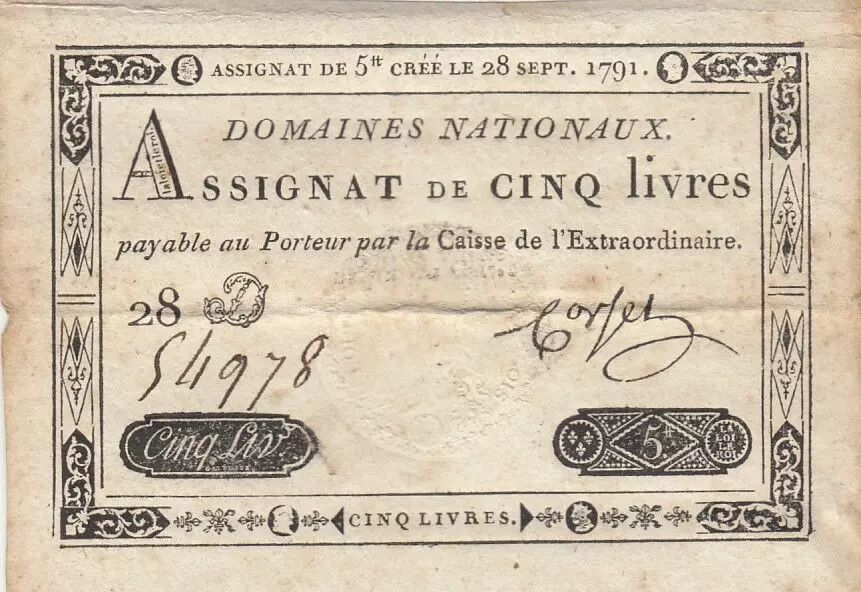 ASSIGNAT DE 5ᵗᵗ CRÉÉ LE 28 SEPT. 1791.
DOMAINES NATIONAUX.
ASSIGNAT DE CINQ livres
payable au Porteur par la Caisse de l'Extraordinaire.
28 D
54978
Corsel
Cinq Liv.
5ᵗᵗ
LA
LOI
LE
ROI
CINQ LIVRES.